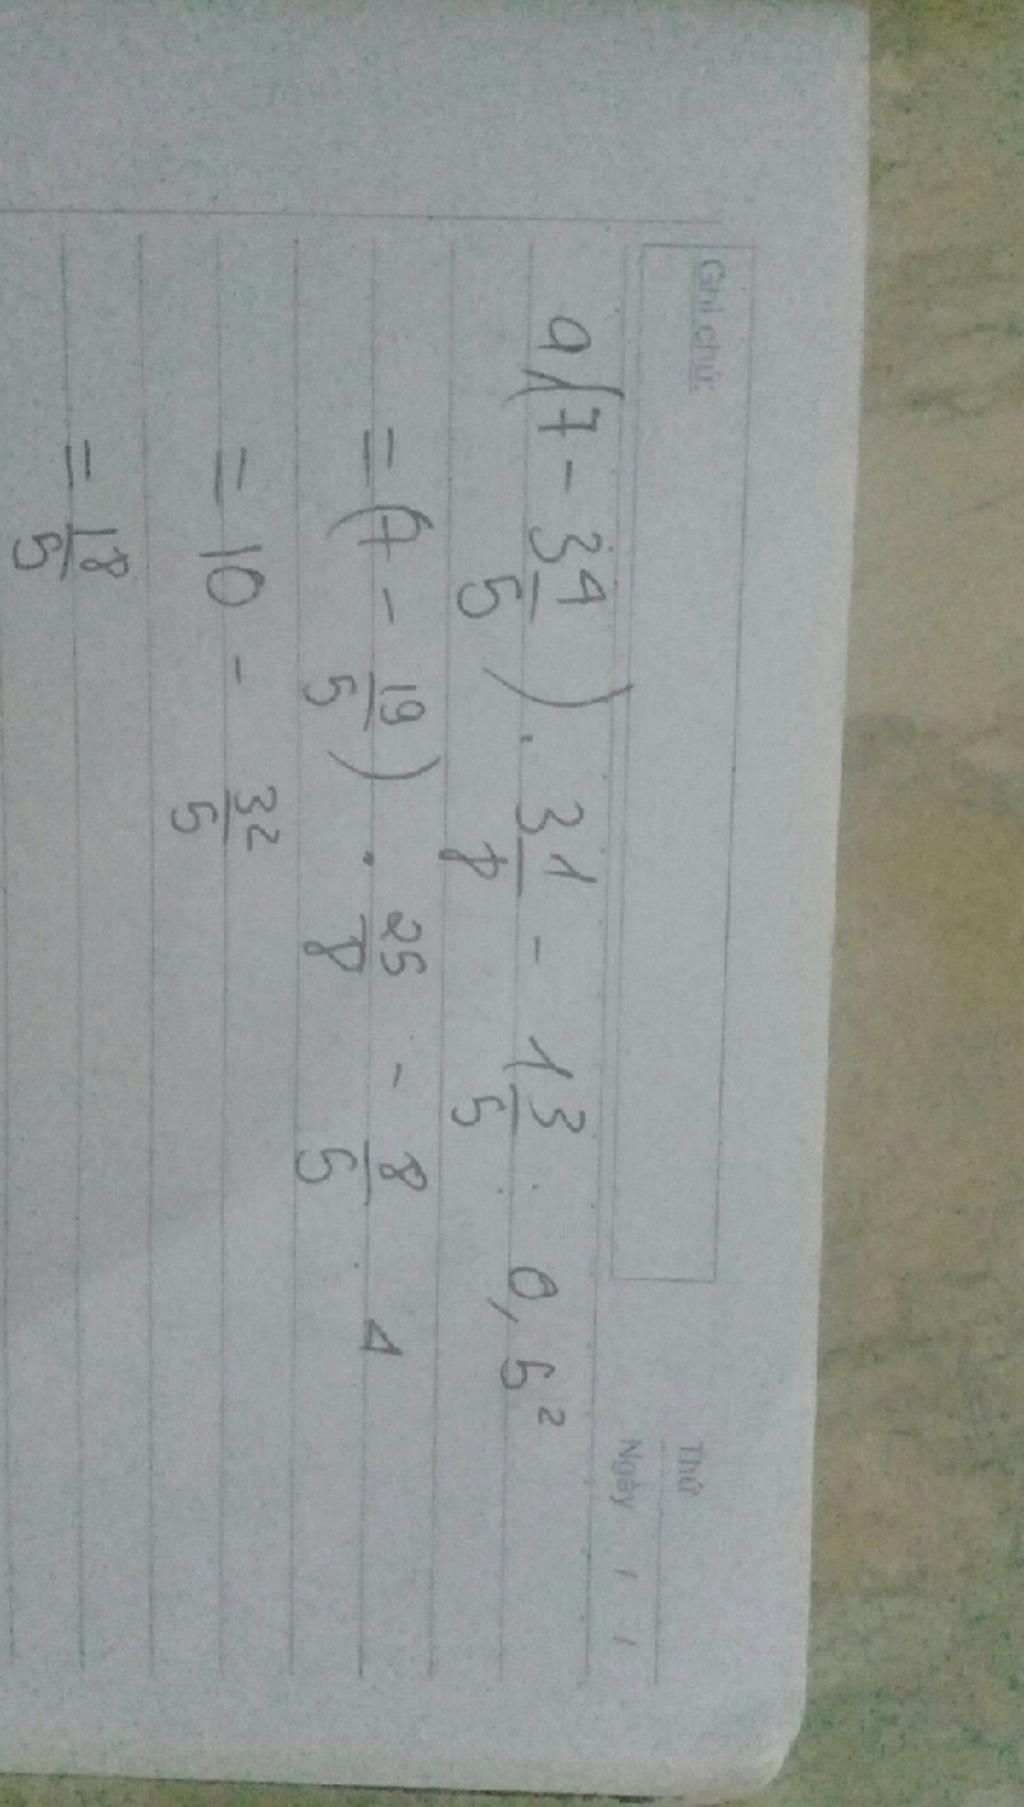 Ghi chú:
Thứ
Ngày / /
a/(7 - 3 4/5) . 3 1/8 - 1 3/5 : 0,5²
= (7 - 19/5) . 25/8 - 8/5 . 4
= 10 - 32/5
= 18/5